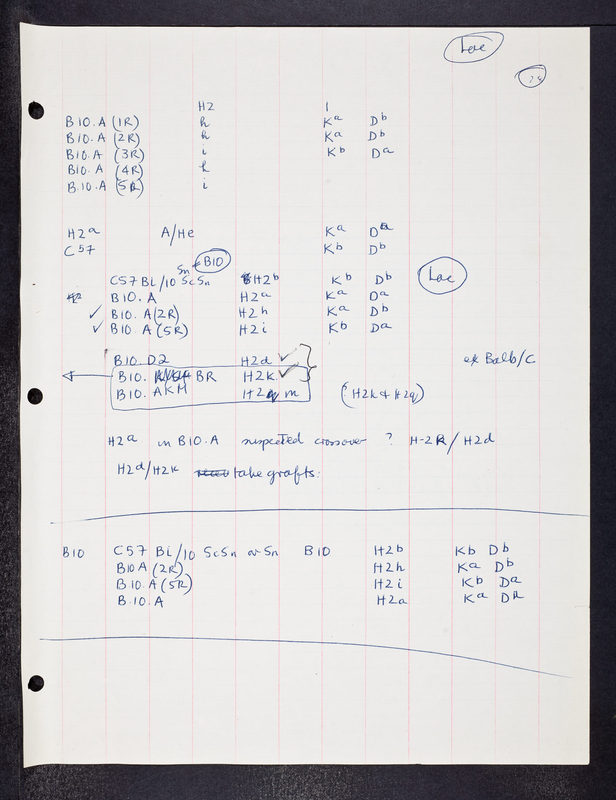 Loc
24
H2 1
B10.A (1R) h Ka Db
B10.A (2R) h Ka Db
B10.A (3R) i Kb Da
B10.A (4R) h
B.10.A (5R) i
H2a A/He Ka Da
C57 Kb Db
Sn B10
C57 Bl/10 ScSn H2b Kb Db Loc
B10.A H2a Ka Da
✓ B10.A(2R) H2h Ka Db
✓ B10.A(5R) H2i Kb Da
B10.D2 H2d ✓ Balb/C
B10. BR H2k ✓
B10. AKM H2 m (? H2k & H2q)
H2a in B10.A suspected crossover ? H-2k/H2d
H2d/H2k take grafts.
B10 C57 Bl/10 ScSn or Sn B10 H2b Kb Db
B10A (2R) H2h Ka Db
B.10.A (5R) H2i Kb Da
B.10.A H2a Ka Da